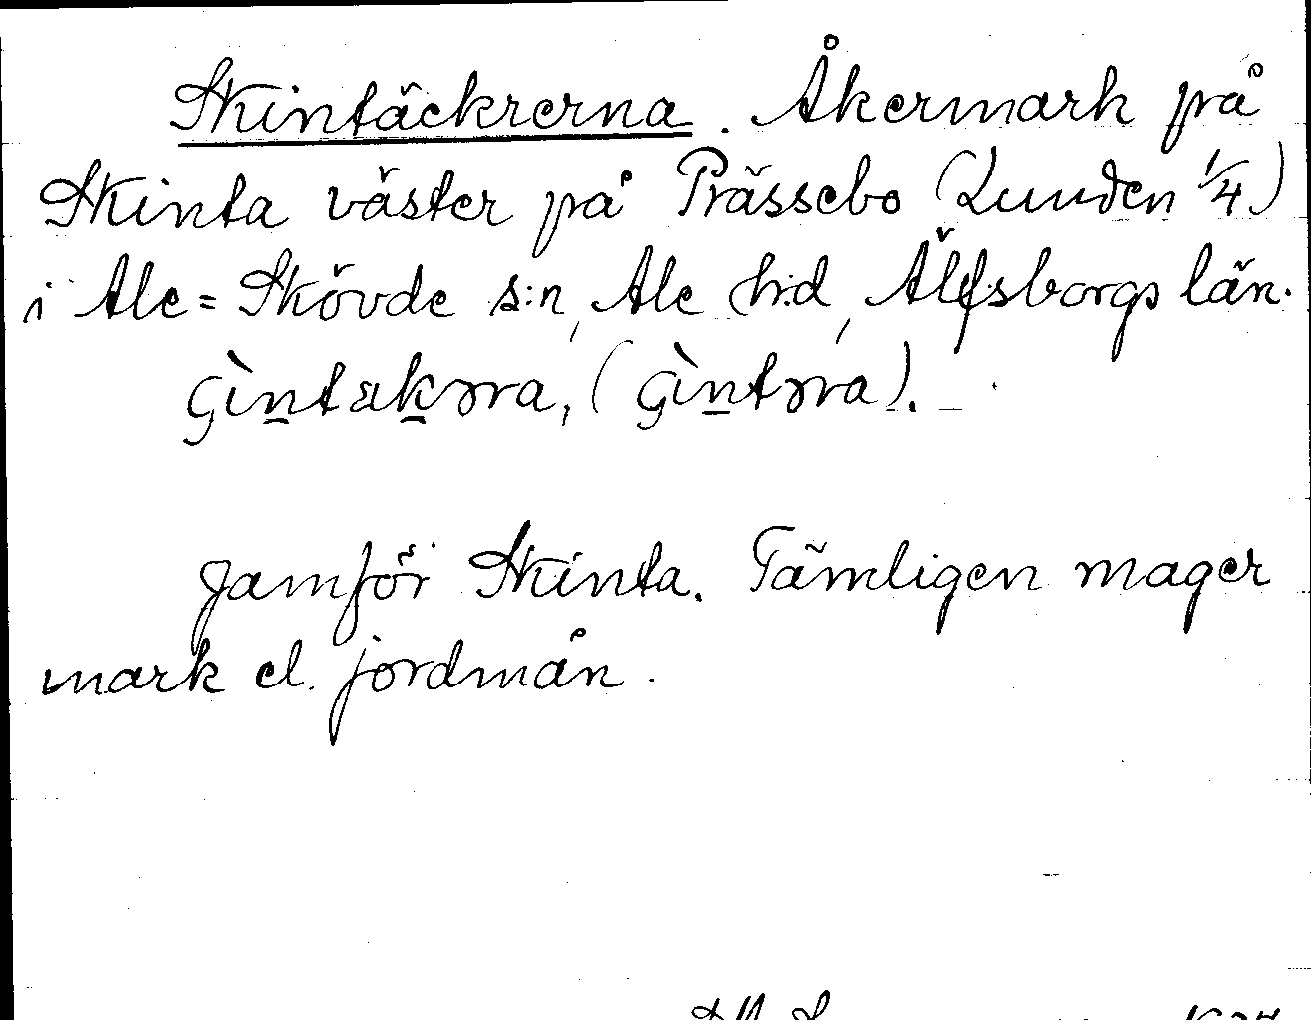 Skintäckrerna. Åkermark på
Skinta väster på Prässebo (Lunden 1/4)
i Ale=Skövde s:n, Ale h:d, Älfsborgs län.
jämför Skinta. Tämligen mager
mark el. jordmån.